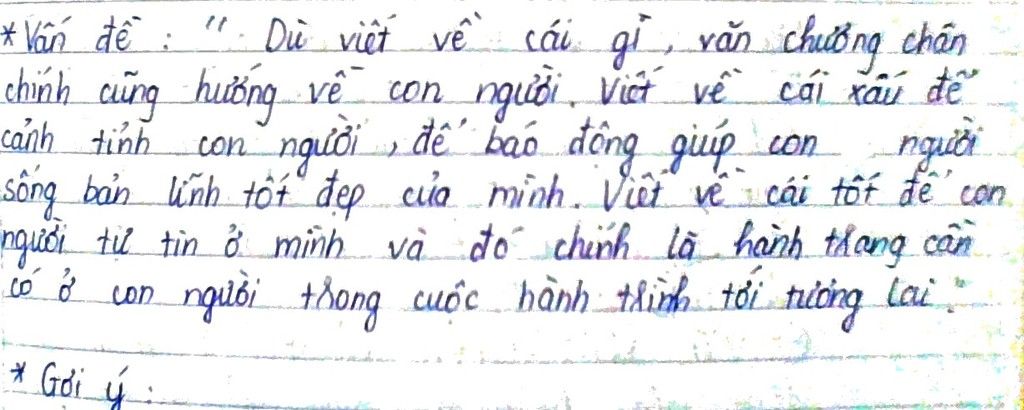 * Vấn đề : " Dù viết về cái gì, văn chương chân
chính cũng hướng về con người. Viết về cái xấu để
cảnh tỉnh con người, để báo động giúp con người
sống bản lĩnh tốt đẹp của mình. Viết về cái tốt để con
người tự tin ở mình và đó chính là hành trang cần
có ở con người trong cuộc hành trình tới tương lai."
* Gợi ý :